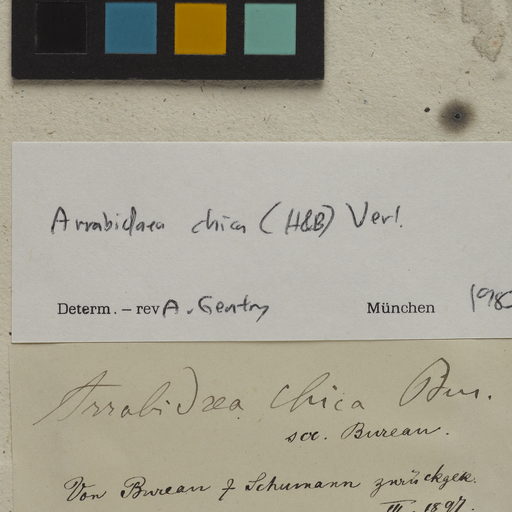 Arrabidaea chica (H&B) Verl.
Determ. – rev A. Gentry München 198
Arrabidaea chica Bur.
sec. Bureau.
Von Bureau & Schumann zurückgek.
III. 1897.